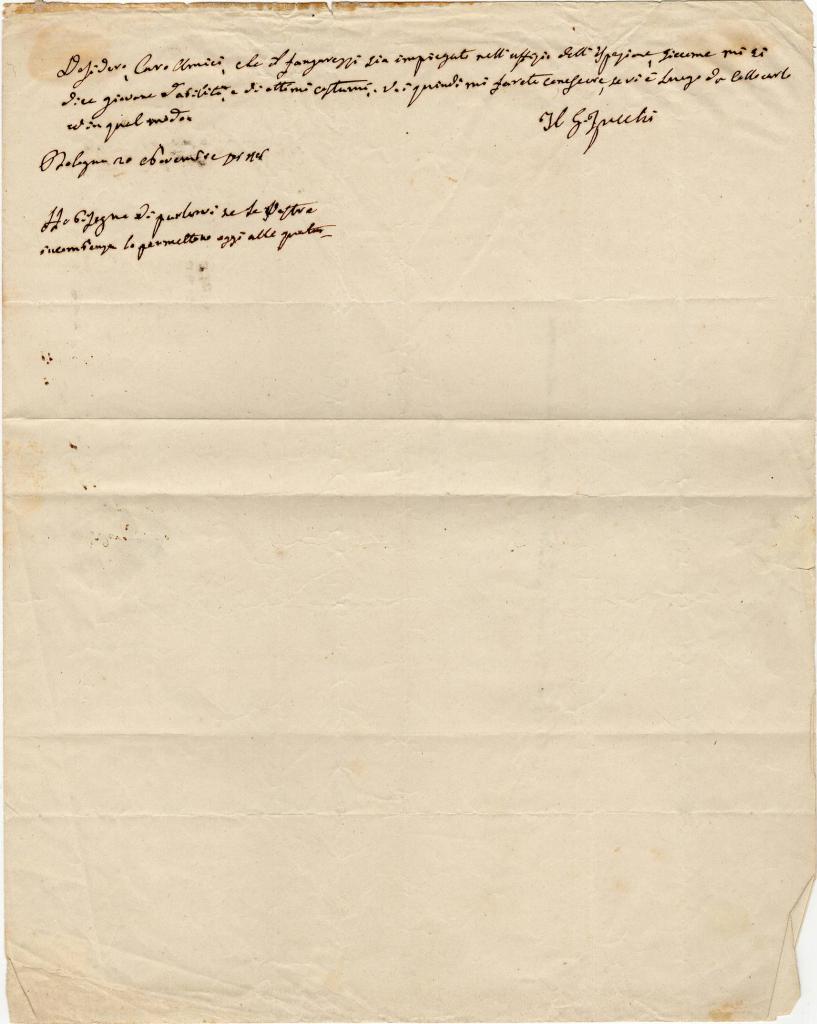 Desidero, Caro Amici, che il Fangarezzi sia impiegato nell'uffizio dell'Ispezione, siccome mi si
dice giovane d'abilità, e di ottimi costumi. Voi quindi mi farete conoscere, se vi è luogo da collocarlo
in quel modo
Il G. Zucchi
Bologna 20 9bre
Ho bisogno di parlarvi se le vostre
incombenze lo permettono oggi alle quattro